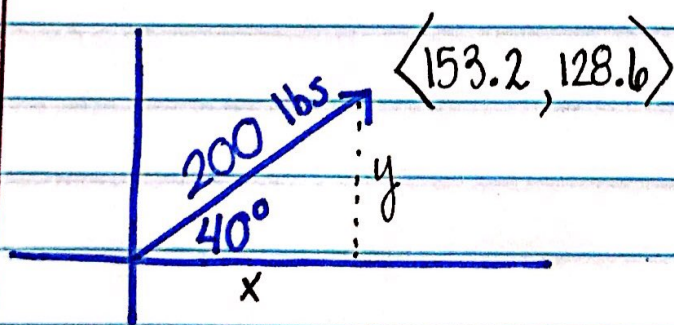 ⟨153.2, 128.6⟩
200 lbs
y
40°
x